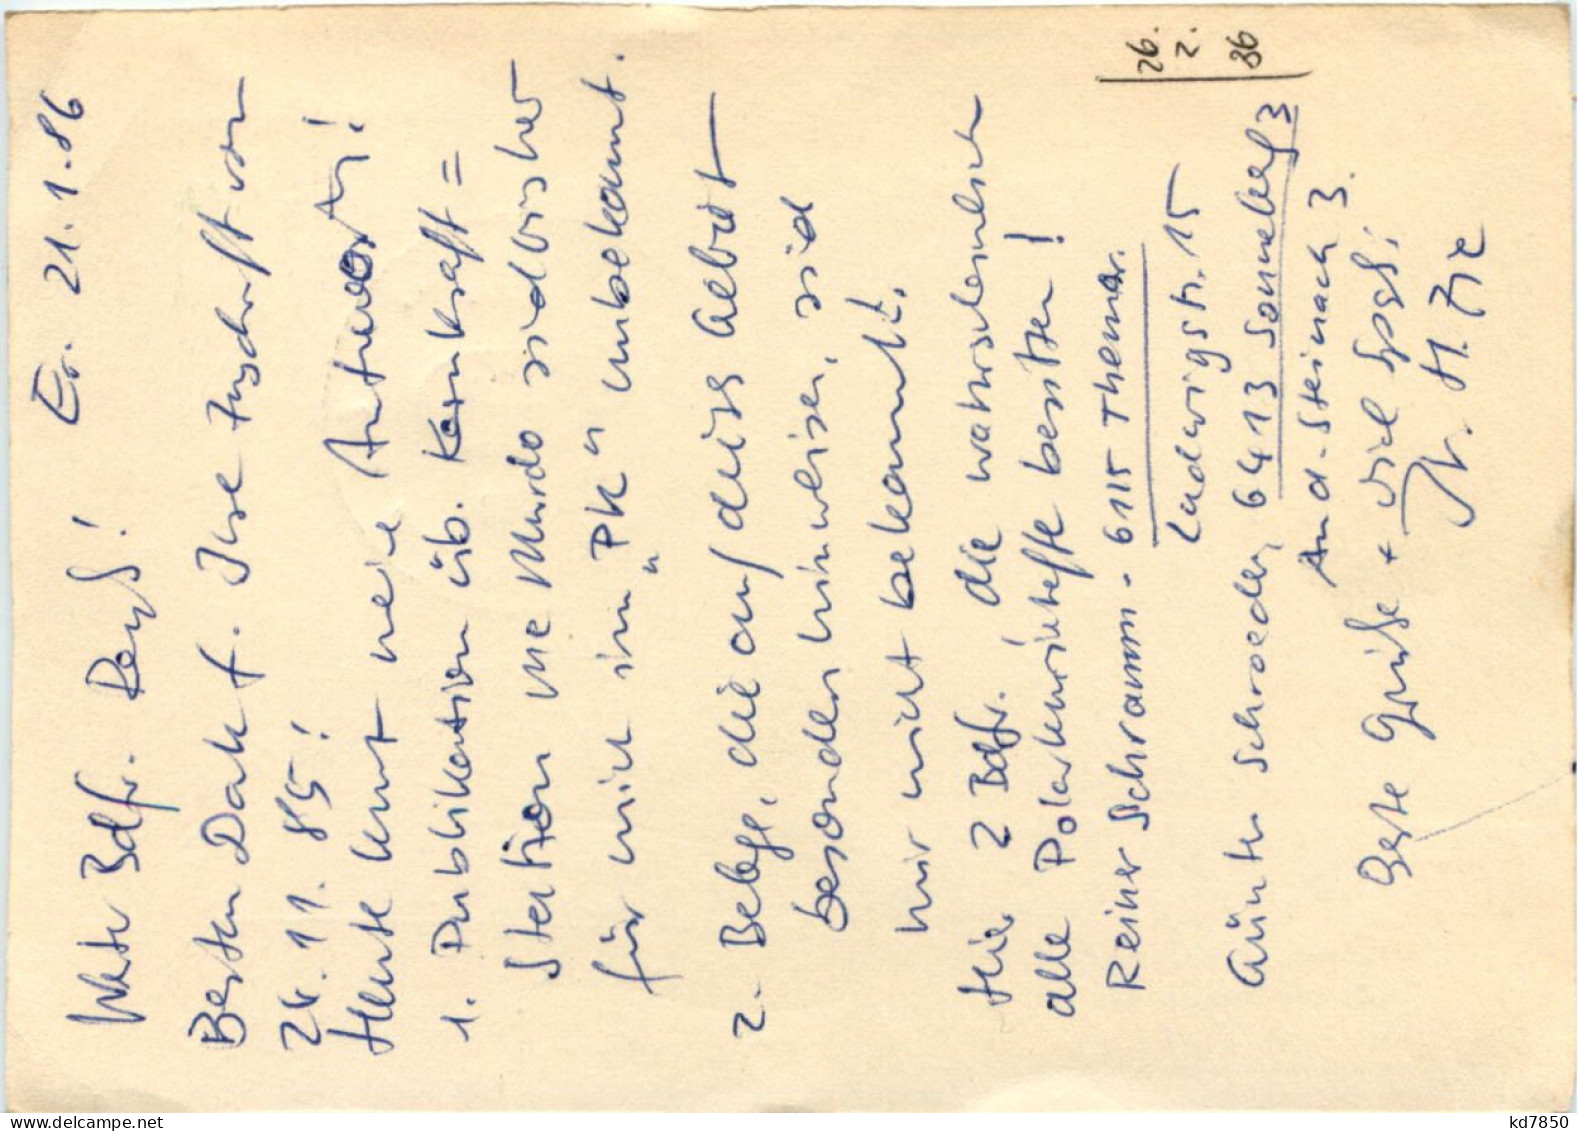 Er. 21.1.86
Werter Bdfr.
Besten Dank f. Ihre Zuschrift von
24.11.85!
Heute kommt meine Antwort!
1. Publikation üb. Kernkraft =
Station Mc Murdo sind bisher
für mich im "PK" unbekannt.
2. Belege, die auf dieses Gebiet
besonders hinweisen, sind
mir nicht bekannt.
Hier 2 Bdfr. die wahrscheinlich
alle Polarkurierhefte besitzen!
Reiner Schramm - 6115 Themar.
Ludwigstr. 15
Günter Schroeder, 6413 Sonneberg 3
An d. Steinach 3.
Beste Grüße + viel
H.
26.
2.
86
kd7850